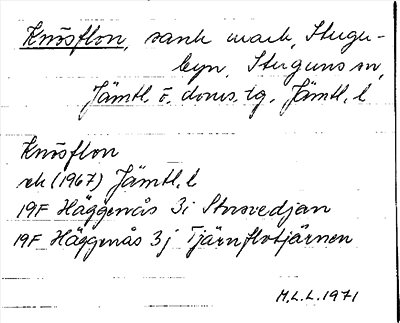 Knösflon, sank mark, Stugu-
byn, Stuguns sn,
Jämtl. ö. doms. tg. Jämtl. l
Knösflon
ek (1967) Jämtl. l
19F Häggenås 3i Storsvedjan
19F Häggenås 3j Tjärnflotjärnen
H.L.L. 1971